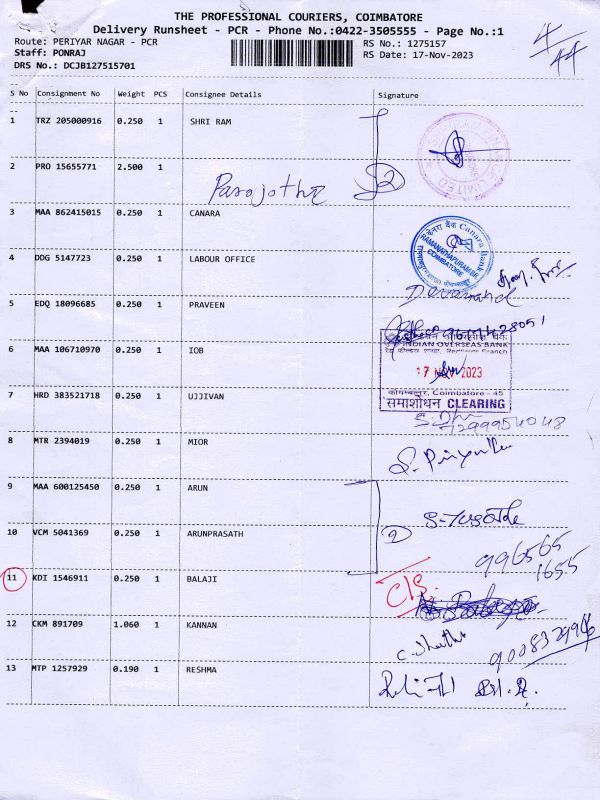 THE PROFESSIONAL COURIERS, COIMBATORE
Delivery Runsheet - PCR - Phone No.:0422-3505555 - Page No.:1
Route: PERIYAR NAGAR - PCR
Staff: PONRAJ
DRS No.: DCJB127515701
RS No.: 1275157
RS Date: 17-Nov-2023
4/44
S No Consignment No Weight PCS Consignee Details Signature
1 TRZ 205000916 0.250 1 SHRI RAM
LIMITED
2 PRO 15655771 2.500 1
2
3 MAA 862415015 0.250 1 CANARA
केनरा बैंक Canara Bank
RAMANATHAPURAM BR
COIMBATORE
4 DDG 5147723 0.250 1 LABOUR OFFICE
5 EDQ 18096685 0.250 1 PRAVEEN
6 MAA 106710970 0.250 1 IOB
INDIAN OVERSEAS BANK
Branch
17 NOV 2023
कोयम्बत्तूर, Coimbatore - 45
समाशोधन CLEARING
7 HRD 383521718 0.250 1 UJJIVAN
8 MTR 2394019 0.250 1 MIOR
9 MAA 600125450 0.250 1 ARUN
10 VCM 5041369 0.250 1 ARUNPRASATH
2
996565
1655
11 KDI 1546911 0.250 1 BALAJI
C/S.
12 CKM 891709 1.060 1 KANNAN
13 MTP 1257929 0.190 1 RESHMA